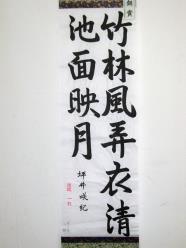 銅賞
竹林風弄衣清
池面映月
坪井咲紀